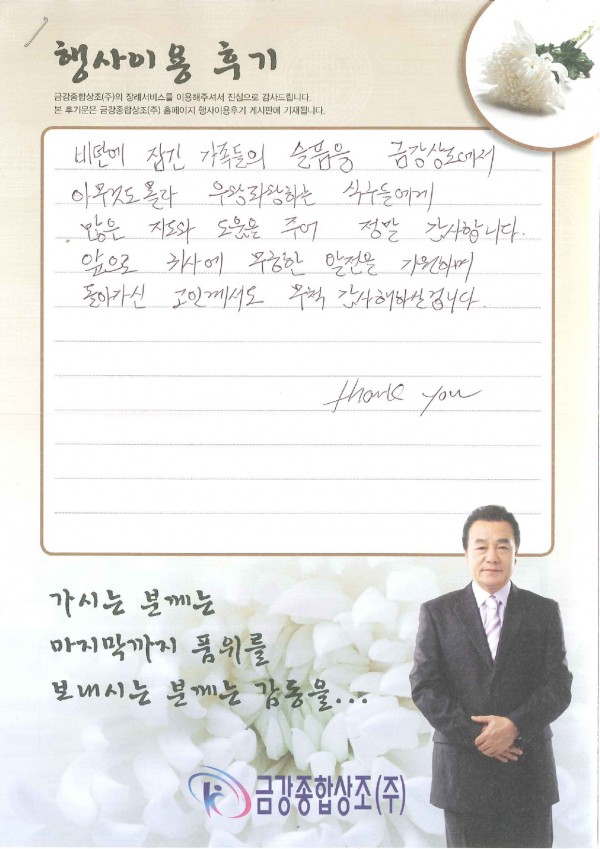 행사이용 후기
금강종합상조(주)의 장례서비스를 이용해주셔서 진심으로 감사드립니다.
본 후기문은 금강종합상조(주) 홈페이지 행사이용후기 게시판에 기재됩니다.
비탄에 잠긴 가족들의 슬픔을 금강상조에서
아무것도 몰라 우왕좌왕하는 식구들에게
많은 지도와 도움을 주어 정말 감사합니다.
앞으로 귀사에 무궁한 발전을 기원하며
돌아가신 고인께서도 무척 감사해하실겁니다.
thank you
가시는 분께는
마지막까지 품위를
보내시는 분께는 감동을...
금강종합상조(주)